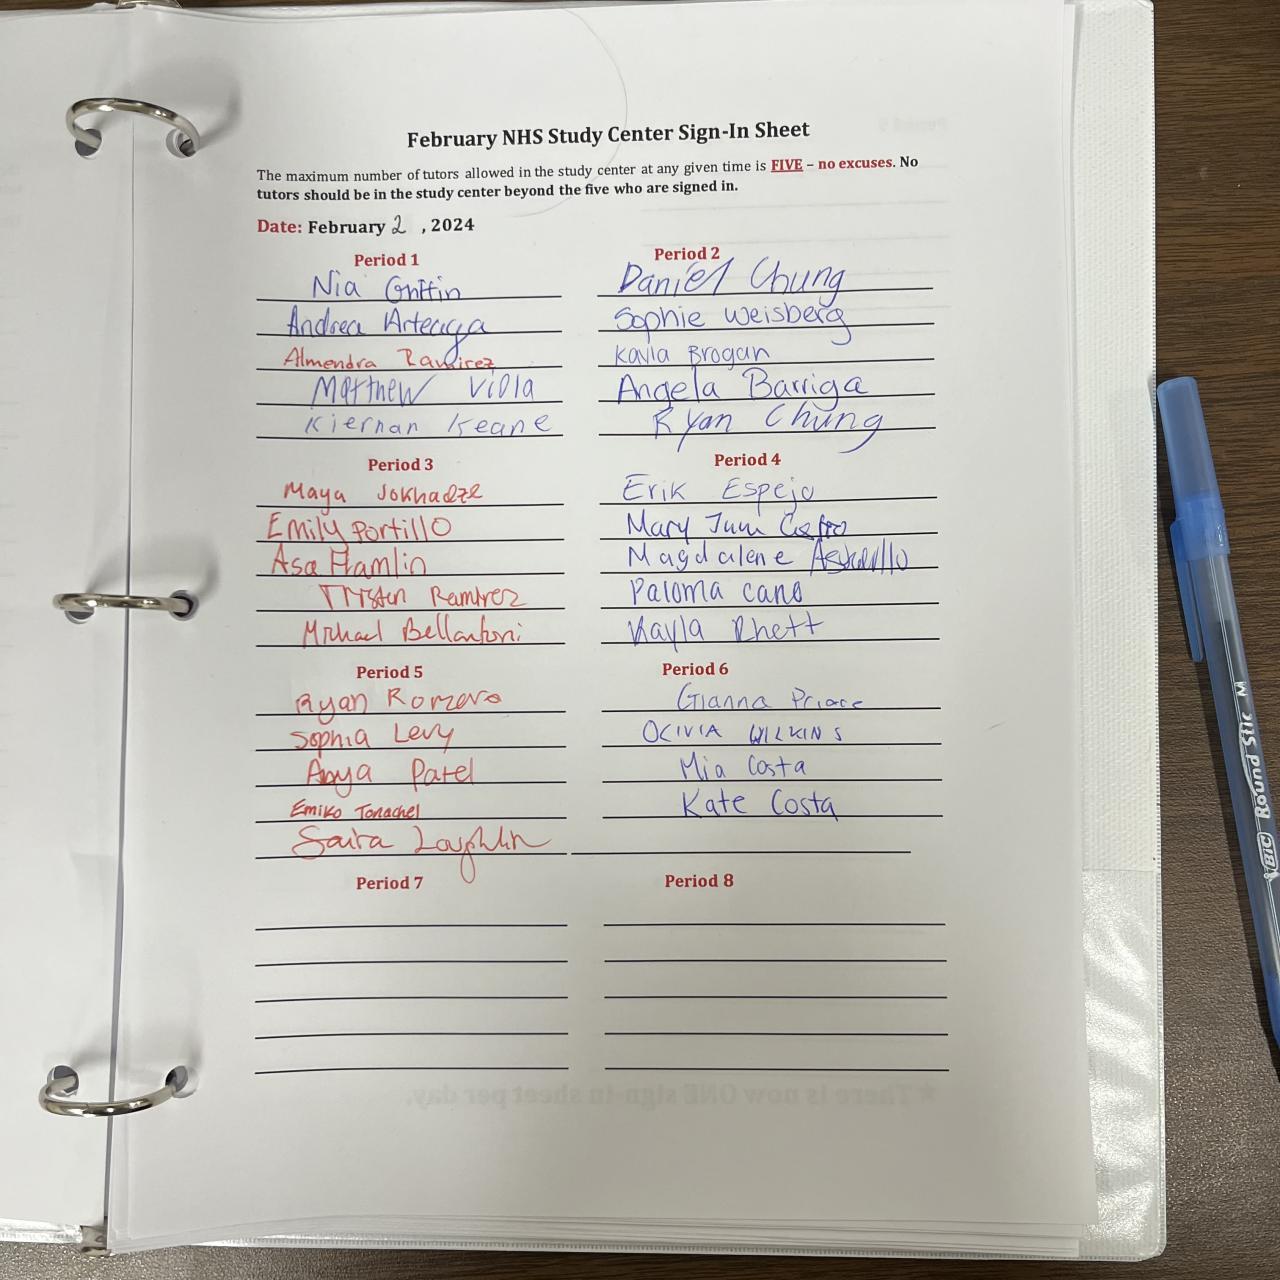 February NHS Study Center Sign-In Sheet
The maximum number of tutors allowed in the study center at any given time is FIVE – no excuses. No
tutors should be in the study center beyond the five who are signed in.
Date: February 2 , 2024
Period 1
Nia Griffin
Andrea Arteaga
Almendra Ramirez
Matthew Viola
Kiernan Keane
Period 2
Daniel Chung
Sophie Weisberg
Kayla Brogan
Angela Barriga
Ryan Chung
Period 3
Maya Jokhadze
Emily Portillo
Asa Hamlin
Tristen Ramirez
Michael Bellantoni
Period 4
Erik Espejo
Mary Castro
Magdalene
Paloma cano
Kayla Rhett
Period 5
Ryan Romero
Sophia Levy
Anya Patel
Emiko Tonachel
Saira Loughlin
Period 6
Gianna
OLIVIA WILKINS
Mia Costa
Kate Costa
Period 7
Period 8
★There is now ONE sign-in sheet per day.
BIC Round Stic M